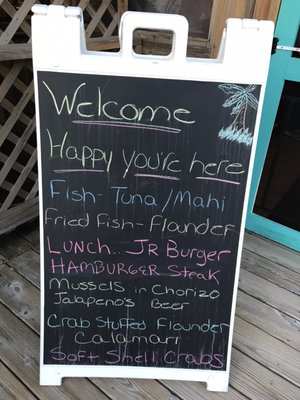 Welcome
Happy you're here
Fish- Tuna/Mahi
Fried Fish- Flounder
Lunch... Jr Burger
Hamburger Steak
Mussels in Chorizo
Jalapeno's Beer
Crab Stuffed Flounder
Calamari
Soft Shell Crabs